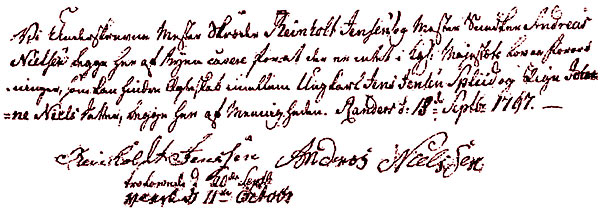 Vi Underskrevne Mester Skræder Reinholt Jensen og Mester Smidker Andreas
Nielsen begge her af Byen cavere for at der er intet i Kgl: Majestets Lover forord
ninger, som kan hindre Egteskab imellem Ungkarl Jens Jensen Spliid og Pigen Johan
=ne Niels datter, begge her af Menigheden. Randers d: 18de Septbr 1767. —
Reinholdt Jensen Andreas Nielsen
trolovede d 20de Septbr
viede d 11te October